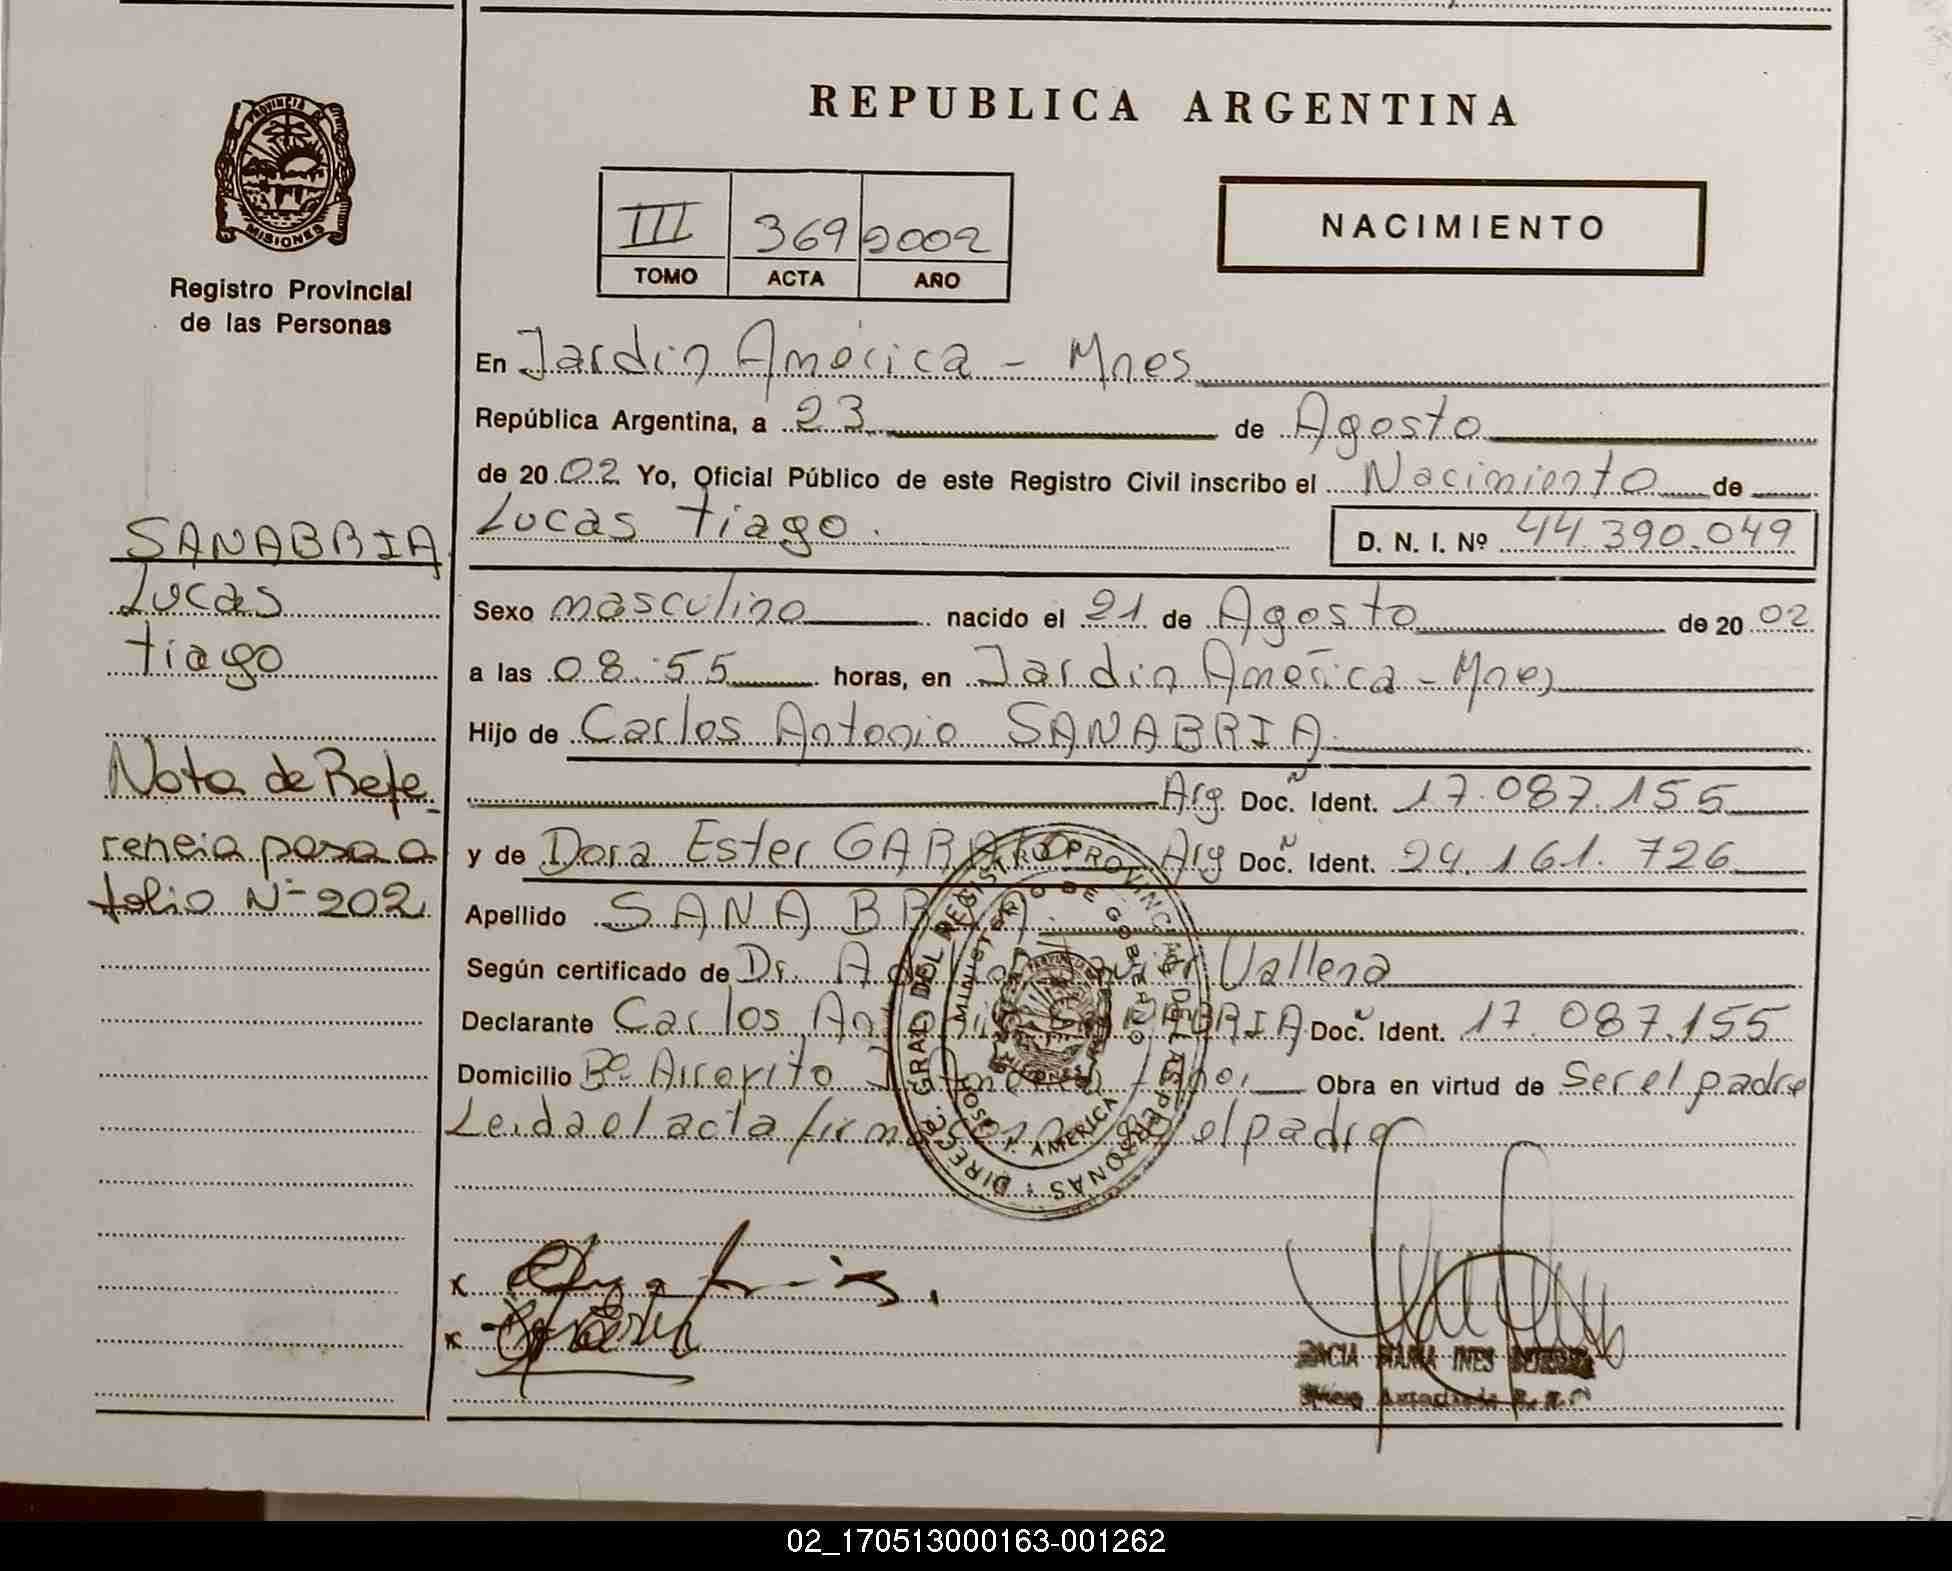 REPUBLICA ARGENTINA
PROVINCIA
MISIONES
Registro Provincial
de las Personas
III 369 2002
TOMO ACTA AÑO
NACIMIENTO
En Jardin América - Mnes
República Argentina, a 23 de Agosto
de 2002 Yo, Oficial Público de este Registro Civil inscribo el Nacimiento de
Lucas tiago. D. N. I. Nº 44.390.049
Sexo masculino nacido el 21 de Agosto de 20 02
a las 08:55 horas, en Jardin América - Mnes
Hijo de Carlos Antonio SANABRIA
Arg. Doc. Ident. 17.087.155
y de Dora Ester Arg Doc. Ident. 24.161.726
Apellido SANABRIA
Según certificado de Dr. Vallena
Declarante Carlos Antonio SANABRIA Doc. Ident. 17.087.155
Domicilio Bº Arroyito Obra en virtud de Ser el padre
Leida el acta el padre
SANABRIA
Lucas
tiago
Nota de Refe-
rencia pasa a
folio Nº 202
DIRECC. GRAL. DEL REGISTRO PROVINCIAL DE LAS PERSONAS
MINISTERIO DE GOBIERNO
AMERICA
MARIA INES
02_170513000163-001262